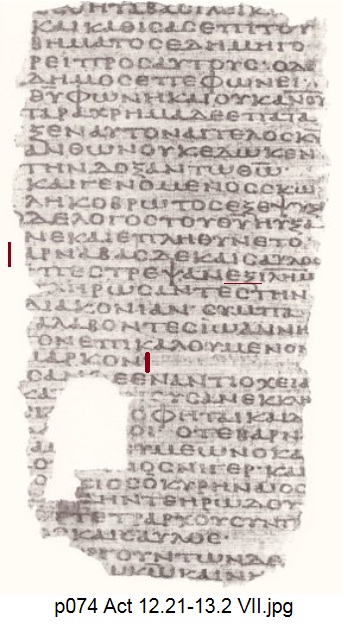 ΗΤΑΒΑϹΙΛΙΚ
ΚΑΙΚΑΘΙϹΑϹΕΠΙΤΟΥ
ΒΗΜΑΤΟϹΕΔΗΜΗΓΟ
ΡΕΙΠΡΟϹΑΥΤΟΥϹ·ΟΔΕ
ΔΗΜΟϹΕΠΕΦΩΝΕΙ·
Θ̅Υ̅ΦΩΝΗΚΑΙΟΥΚΑ̅Ν̅Ο̅Υ̅
ΠΑΡΑΧΡΗΜΑΔΕΕΠΑΤΑ
ΞΕΝΑΥΤΟΝΑΓΓΕΛΟϹΚ
ΑΝΘΩΝΟΥΚΕΔΩΚΕΝ
ΤΗΝΔΟΞΑΝΤΩΘ̅Ω̅
ΚΑΙΓΕΝΟΜΕΝΟϹϹΚΩ
ΛΗΚΟΒΡΩΤΟϹΕΞΕΨΥΞ
ΔΕΛΟΓΟϹΤΟΥΘ̅Υ̅ΗΥΞΑ
ΝΕΚΑΙΕΠΛΗΘΥΝΕΤΟ
ΑΡΝΑΒΑϹΔΕΚΑΙϹΑΥΛΟϹ
ΥΠΕϹΤΡΕΨΑΝΕΞΙΛΗΜ
ΛΗΡΩϹΑΝΤΕϹΤΗΝ
ΔΙΑΚΟΝΙΑΝ·ϹΥΜΠΑ
ΛΑΒΟΝΤΕϹΙΩΑΝΝΗ
ΤΟΝΕΠΙΚΑΛΟΥΜΕΝΟ
ΜΑΡΚΟΝ
ϹΑΝ ΕΕΝΑΝΤΙΟΧΕΙΑ
ΟΥϹΑΝΕΚΚΛ
ΦΗΤΑΙΚΑΙΔ
ΟΙ ΟΤΕΒΑΡΝ
ΥΜΕΩΝΟΚΑ
ΟϹΝΙΓΕΡ·ΚΑΙ
ΚΙΟϹΟΚΥΡΗΝΑΙΟϹ
ΗΝΤΕΗΡΩΔΟΥ
ΤΕΤΡΑΡΧΟΥϹΥΝΤ
ΚΑΙϹΑΥΛΟϹ·
ΡΓΟΥΝΤΩΝΔΕ
ΚΩΚΑΙΝ
p074 Act 12.21-13.2 VII.jpg